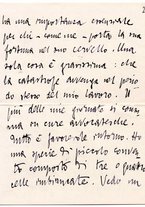 ha una importanza essenziale
per chi - come me - porta la sua
fortuna nel suo cervello. Una
sola cosa è gravissima: che
la catastrofe avvenga nel perio-
do steso del mio lavoro. Il
più delle mie giornate si consu-
ma in cure avvocatesche.
Tutto è favorevole intorno. Ho
una specie di piccolo conven-
to composto di tre o quattro
celle intonacate. Vedo un